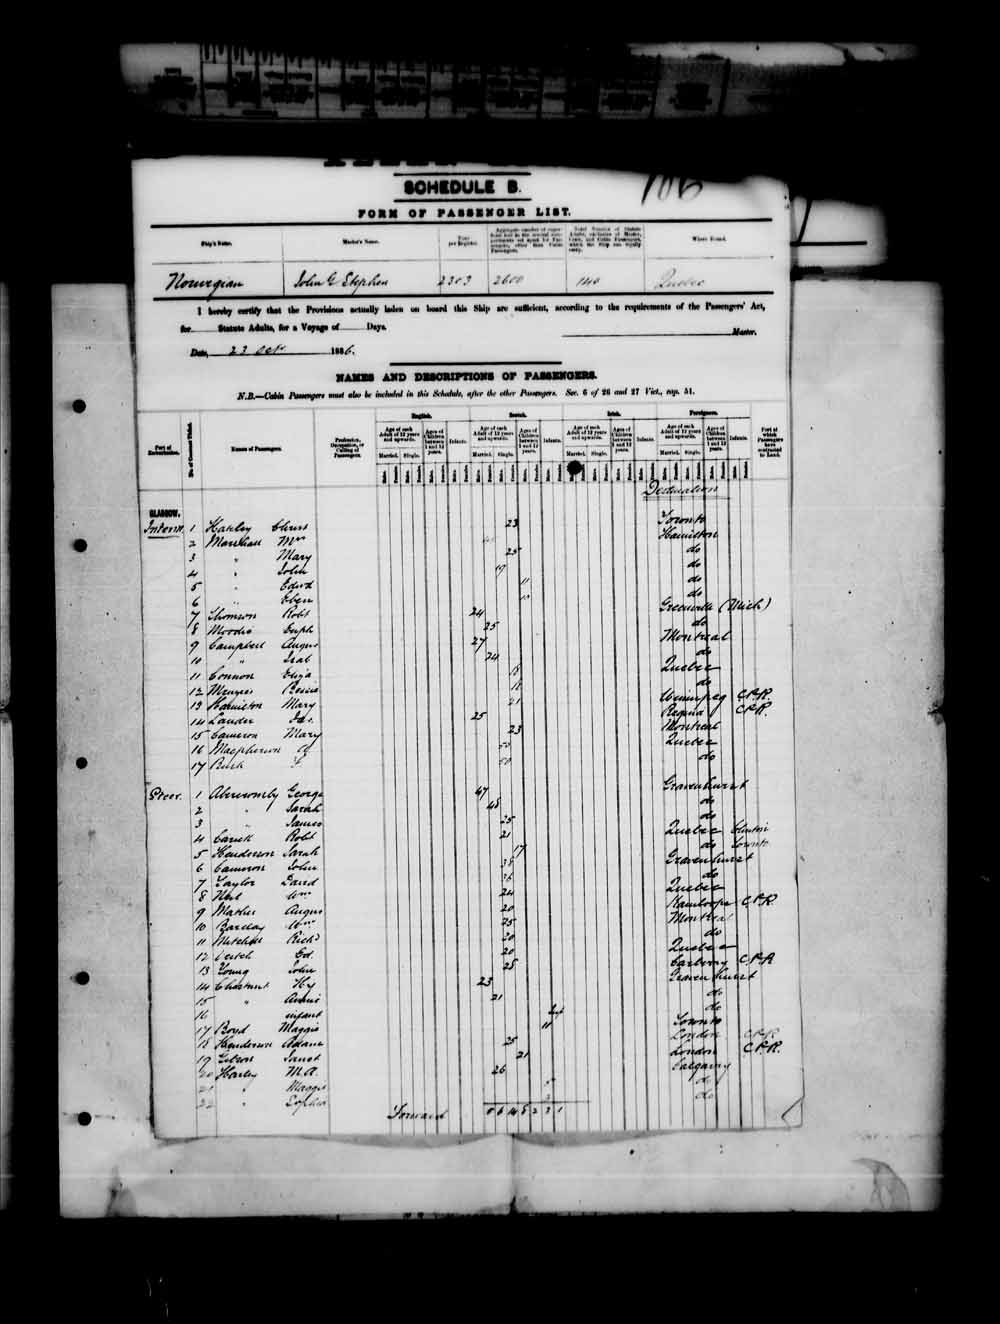 106
SCHEDULE B.
FORM OF PASSENGER LIST.
Ship's Name. Master's Name. Tons per Register. Aggregate number of superficial feet in the several compartments set apart for Passengers, other than Cabin Passengers. Total Number of Statute Adults, exclusive of Master, Crew, and Cabin Passengers, which the Ship can legally carry. Where Bound.
Norwegian John G Stephen 2303 2600 140 Quebec
I hereby certify that the Provisions actually laden on board this Ship are sufficient, according to the requirements of the Passengers' Act,
for Statute Adults, for a Voyage of Days. Master.
Date, 23 Oct 1886.
NAMES AND DESCRIPTIONS OF PASSENGERS.
N.B.—Cabin Passengers must also be included in this Schedule, after the other Passengers. Sec. 6 of 26 and 27 Vict., cap. 51.
English. Scotch. Irish. Foreigners.
Port of Embarkation. No. of Contract Ticket. Names of Passengers. Profession, Occupation, or Calling of Passengers. Age of each Adult of 12 years and upwards. Age of Children between 1 and 12 years. Infants. Port at which Passengers have contracted to Land.
Married. Single.
Destination
GLASGOW.
Interm 1 23 Toronto
2 Marshall Mrs Hamilton
3 " Mary 25 do
4 " John 19 do
5 " Edwd 11 do
6 " Eben do
7 Thomson Robt 24 Greenville (Mich)
8 Moodie Euph 25 do
9 Campbell Angus 27 Montreal
10 " Isab 24 do
11 Connon Eliza 18 Quebec
12 Menzies do
13 Hamilton Mary 21 Winnipeg C.P.R.
14 Lauder Jas. 25 Regina C.P.R.
15 Cameron Mary 23 Montreal
16 Macpherson A 50 Quebec
17 50 do
Steer. 1 Abercromby George 47 Gravenhurst
2 " Sarah 48 do
3 " James 25 do
4 Robt 21 Quebec Clinton
5 Henderson Sarah 17 do Toronto
6 Cameron John 38 Gravenhurst
7 Taylor David 36 do
8 Wm 24 Quebec
9 Angus 20 Kamloops C.P.R.
10 Barclay Wm 25 Montreal
11 Mitchell Richd 20 do
12 Veitch Ed. 20 Quebec
13 Young John 25 Carberry C.P.R
14 Chestnut Hy 23 Gravenhurst
15 " Annie 21 do
16 infant Inf do
17 Boyd Maggie 11 Toronto
18 Henderson Adam 25 London C.P.R
19 Gibson Janet 21 London C.P.R.
20 Harley M.A. 26 Calgarry
21 " Maggie 5 do
22 " Sophia do
Forward